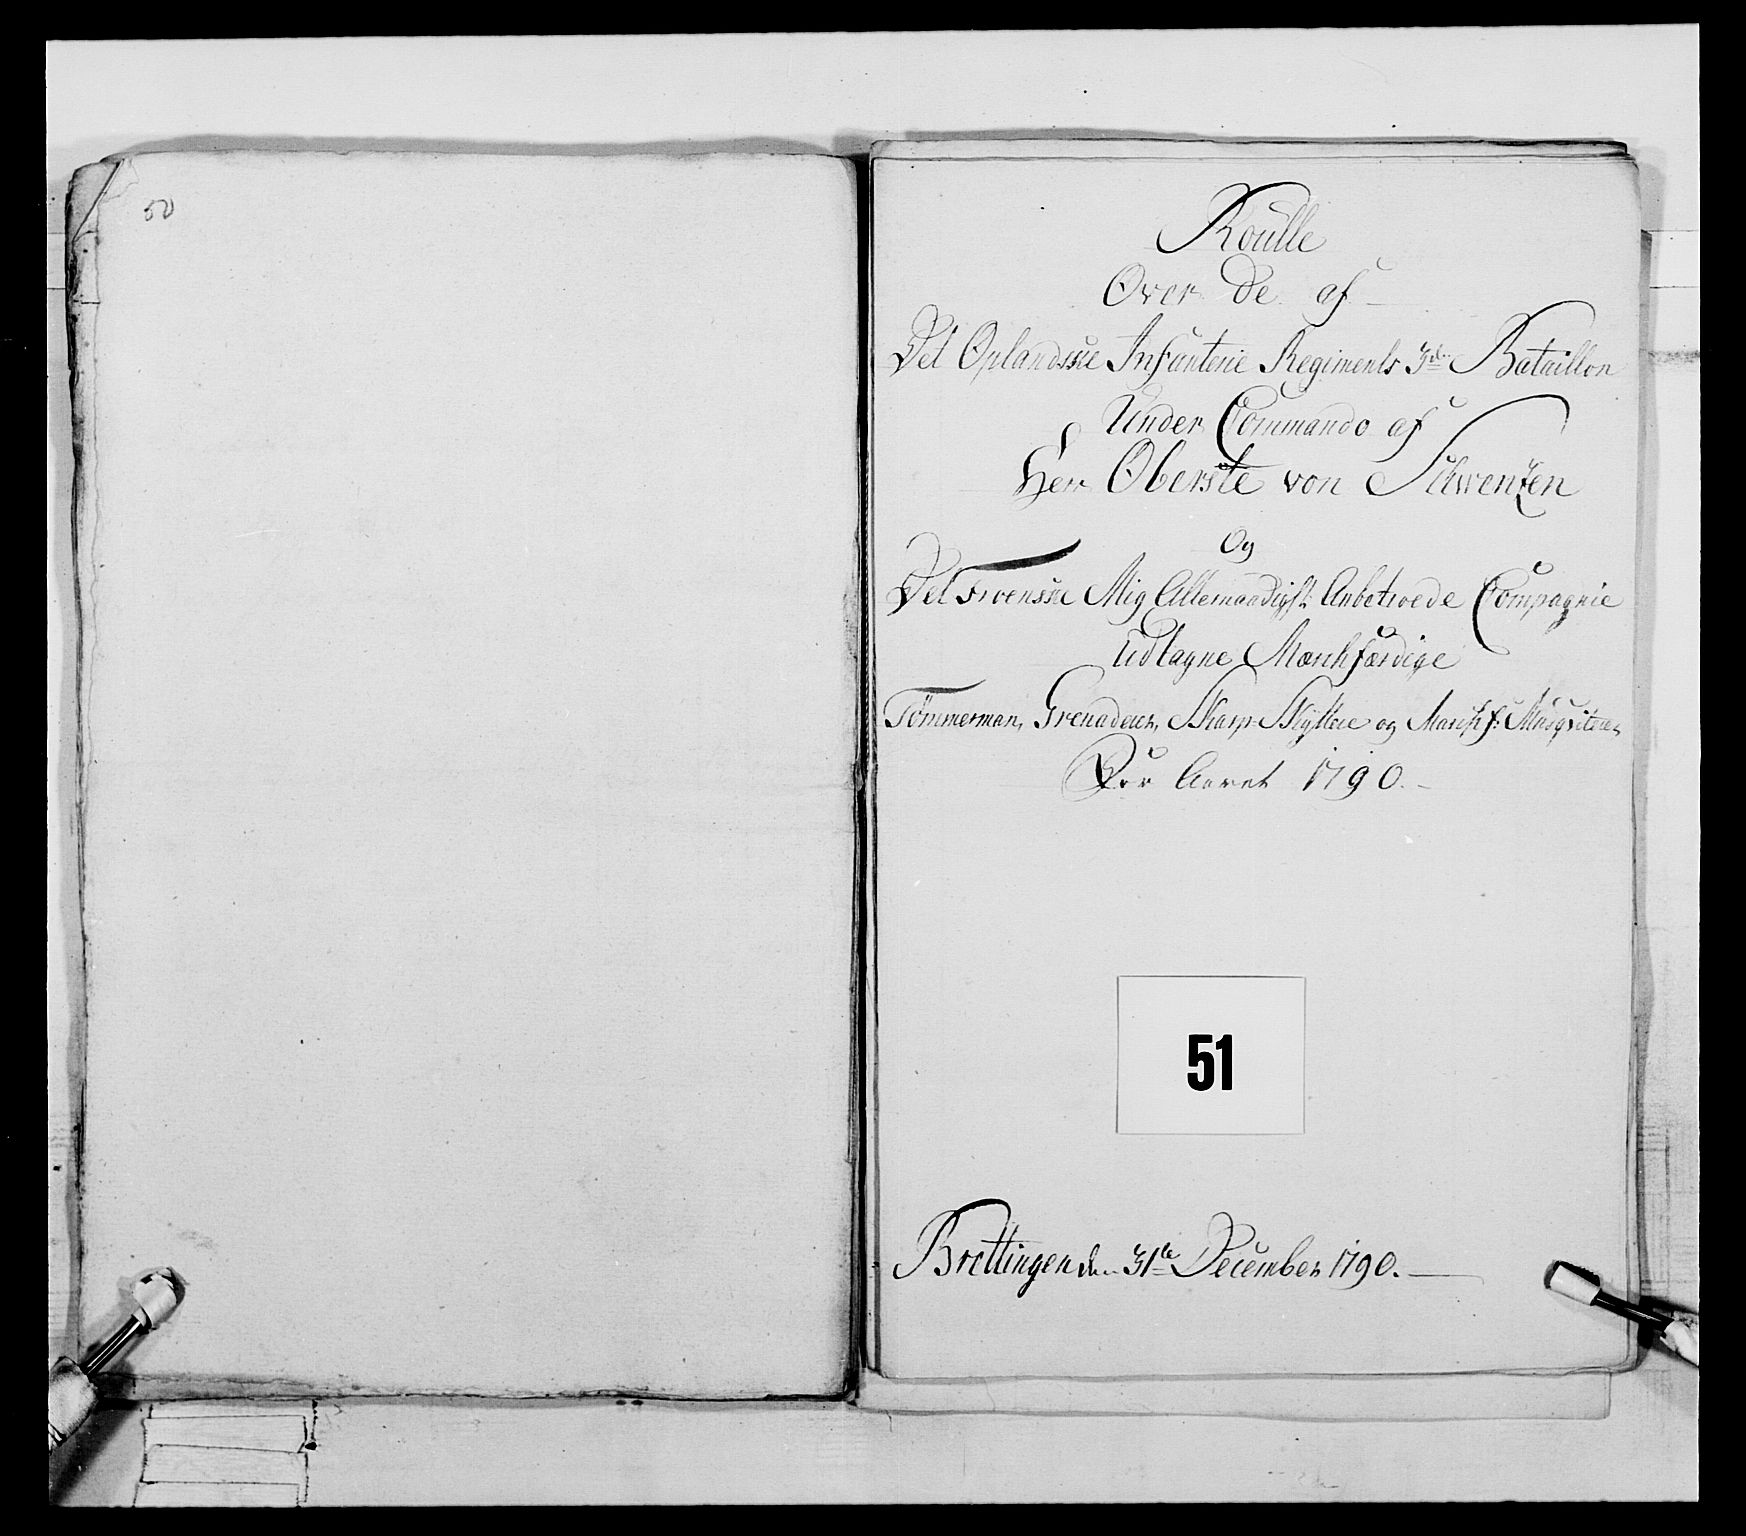 50
Roulle
Over De af
Det Oplandske Infanterie Regiments 3de Bataillon
Under Commando af
Herr Oberste von Schwenzen
Og
Det Tvenske Mig Allernaadigst Anbetroede Compagnie
Udtagne Marchfærdige
Tømmermæn, Grenaderer, Skarp-Skyttere og Marchf: Musqviterer
For Aaret 1790.
51
Brettingen den 31te December 1790.